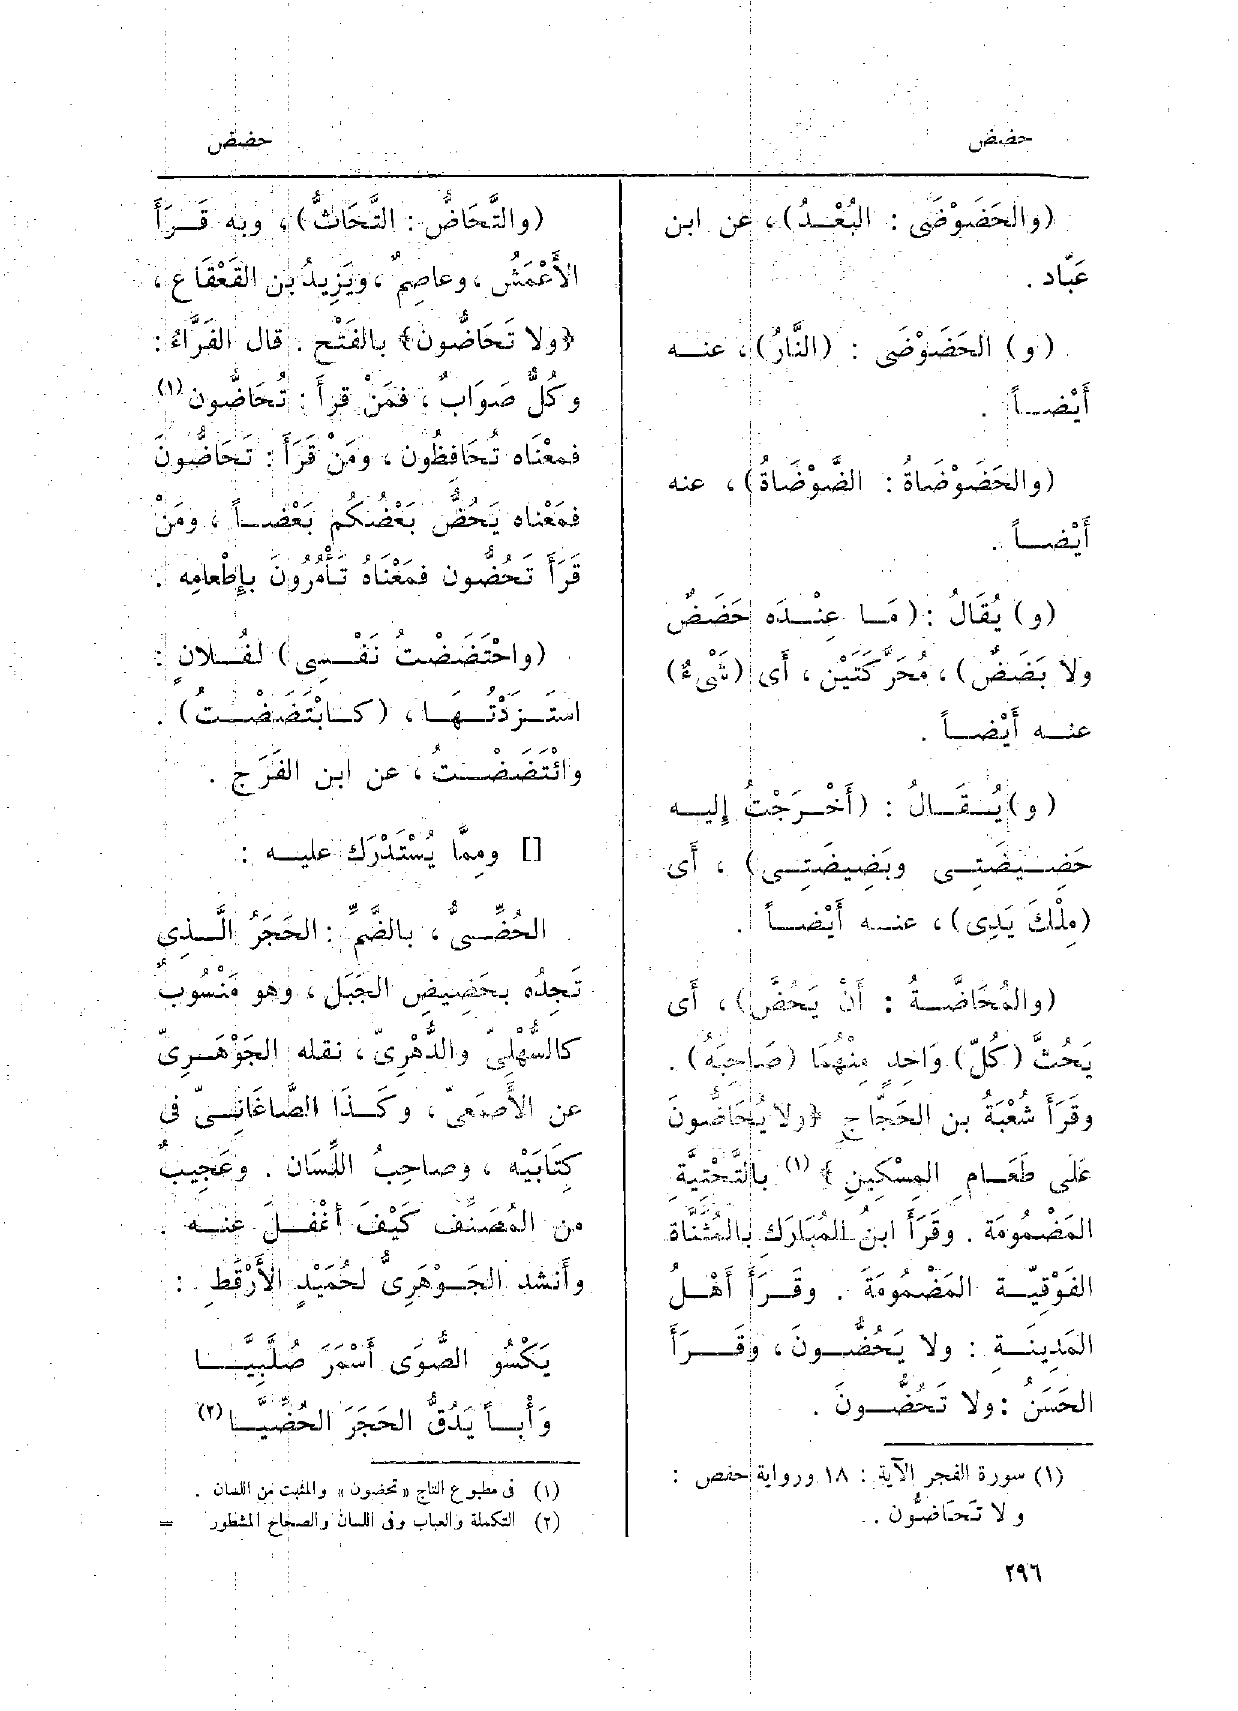 حضض
حضض
(والحَضَوْضَى : البُعْـدُ)، عن ابن
عَبَّاد .
(و) الحَضَوْضَى : (النَّارُ)، عنـه
أَيْضـاً .
(والحَضَوْضَاةُ : الضَّوْضَاةُ)، عنه
أَيْضـاً .
(و) يُقَالُ : (مَـا عِنْـدَه حَضَضٌ
ولا بَضَضٌ)، مُحَرَّكَتَيْن ، أَى (شَىْءٌ)
عنـه أَيْضـاً .
(و) يُـقَـالُ : (أَخْـرَجْتُ إِليـه
حَضِـيـضَتِـى وبَضِيضَتِـى) ، أَى
(مِلْكَ يَدِى)، عنـه أَيْضـاً .
(والمُحَاضَّـةُ : أَنْ يَحُضَّ)، أَى
يَحُثَّ (كُلّ) وَاحِدٍ مِنْهُمَا (صَاحِبَهُ) .
وقَرَأَ شُعْبَةُ بن الحَجَّاجِ ﴿ولا يُحَاضُّونَ
عَلَى طَعَـامِ المِسْكِينِ﴾ (١) بالتَّحْتِيَّةِ
المَضْمُومَة . وقَرَأَ ابنُ المُبَارَكِ بالمُثَنَّاة
الفَوْقِيَّـة المَضْمُومَةَ . وقَـرَأَ أَهْـلُ
المَدِينَـةِ : ولا يَحُضُّـونَ ، وقَـرَأَ
الحَسَنُ : ولا تَحُضُّـونَ .
(١) سورة الفجر الآية : ١٨ ورواية حفص :
و لا تَحَاضُّون .
(والتَّحَاضُّ : التَّحَاثُّ) ، وبه قَـرَأَ
الأَعْمَشُ ، وعاصِمٌ ، ويَزِيدُ بن القَعْقَاع ،
﴿ولا تَحَاضُّون﴾ بالفَتْح . قال الفَرَّاءُ :
وكُلٌّ صَوَابٌ ، فمَنْ قرأَ : تُحَاضُّون (١)
فمعْنَاه تُحَافِظُون ، ومَنْ قَرَأَ : تَحَاضُّونَ
فمَعْنَاه يَحُضُّ بَعْضُكم بَعْضـاً ، ومَنْ
قَرَأَ تَحُضُّون فمَعْنَاهُ تَأْمُرُونَ بإِطْعامِه .
(واحْتَضَضْتُ نَفْـسِى) لفُـلانٍ :
استَـزَدْتُـهَـا، (كـابْتَضَضْـتُ) .
وائْتَضَضْـتُ ، عن ابن الفَرَج .
[] ومِمَّا يُسْتَدْرَك عليـه :
الحُضِّـىُّ ، بالضَّمِّ : الحَجَرُ الَّـذِى
تَجِدُه بحَضِيضِ الجَبَل ، وهو مَنْسُوبٌ
كالسُّهْلِىّ والدُّهْرِىّ ، نقله الجَوْهَـرِىّ
عن الأَصْمَعِىّ ، وكَـذَا الصَّاغَانِـىّ فى
كِتَابَيْه ، وصاحِبُ اللِّسَان . وعَجِيبٌ
من المُصَنِّف كَيْفَ أَغْفَـلَ عنـه .
وأَنشد الجَـوْهَرِىُّ لحُمَيْدٍ الأَرْقَطِ :
يَكْسُو الصُّوَى أَسْمَرَ صُلَّبِيَّـا
وَأْبـاً يَدُقُّ الحَجَرَ الحُضِّيَّـا (٢)
(١) فى مطبوع التاج « تحضون » والمثبت من اللسان .
(٢) التكملة والعباب وفى اللسان والصحاح المشطور =
٢٩٦